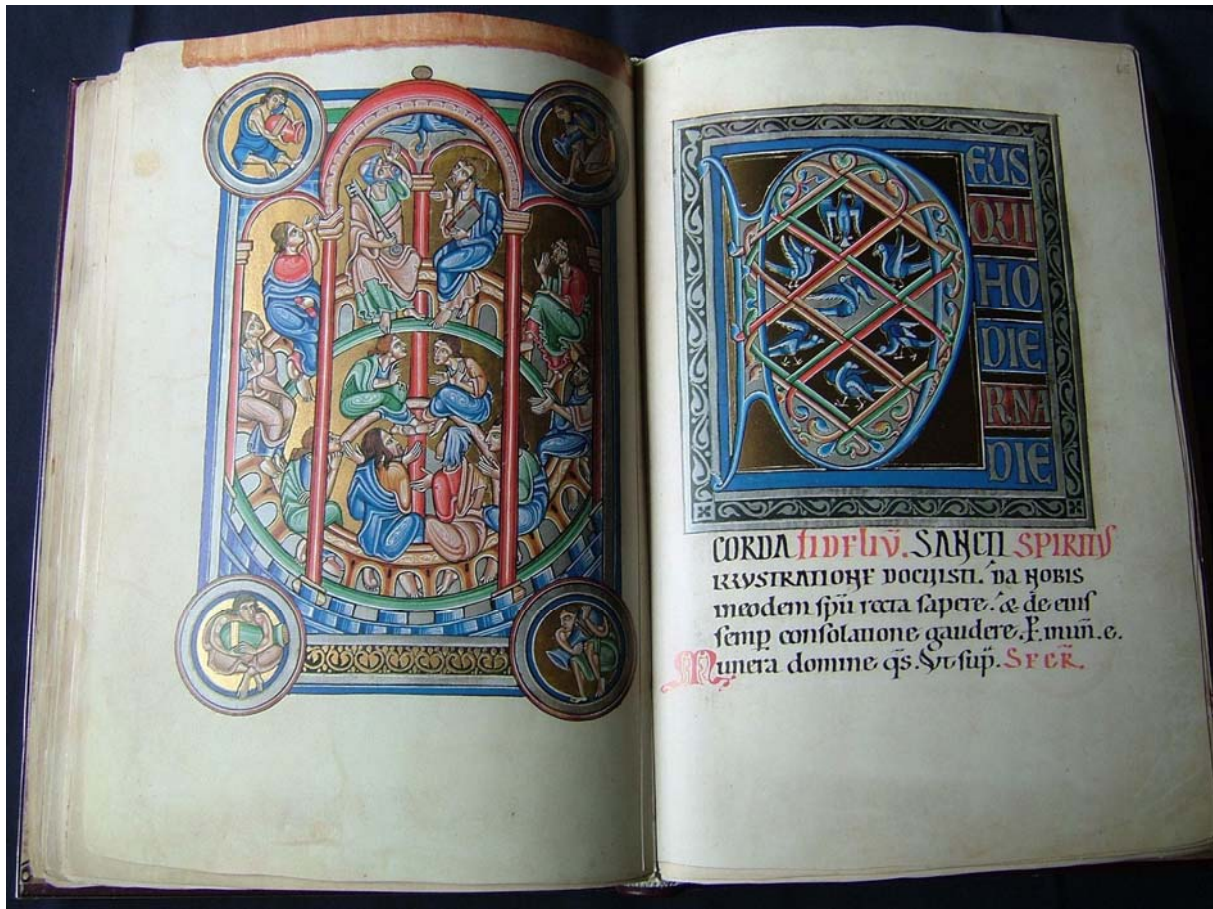 DEUS
QUI
HO
DIE
RNA
DIE
CORDA FIDELIŪ. SANCTI SPIRITUS
ILLUSTRATIONE DOCUISTI. DA NOBIS
ineodem sp̄u recta sapere. & de eius
semp consolatione gaudere. P. miūi. e.
Munera domine q̄s. Vt sup̄. SECR̄.